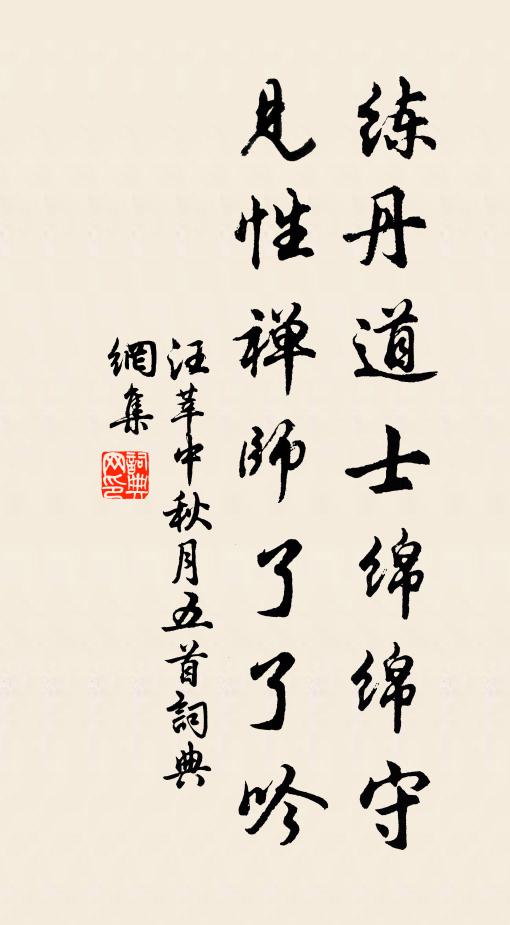 练丹道士绵绵守
见性禅师了了吟
汪莘中秋月五首詞典
網集
詞典
网印